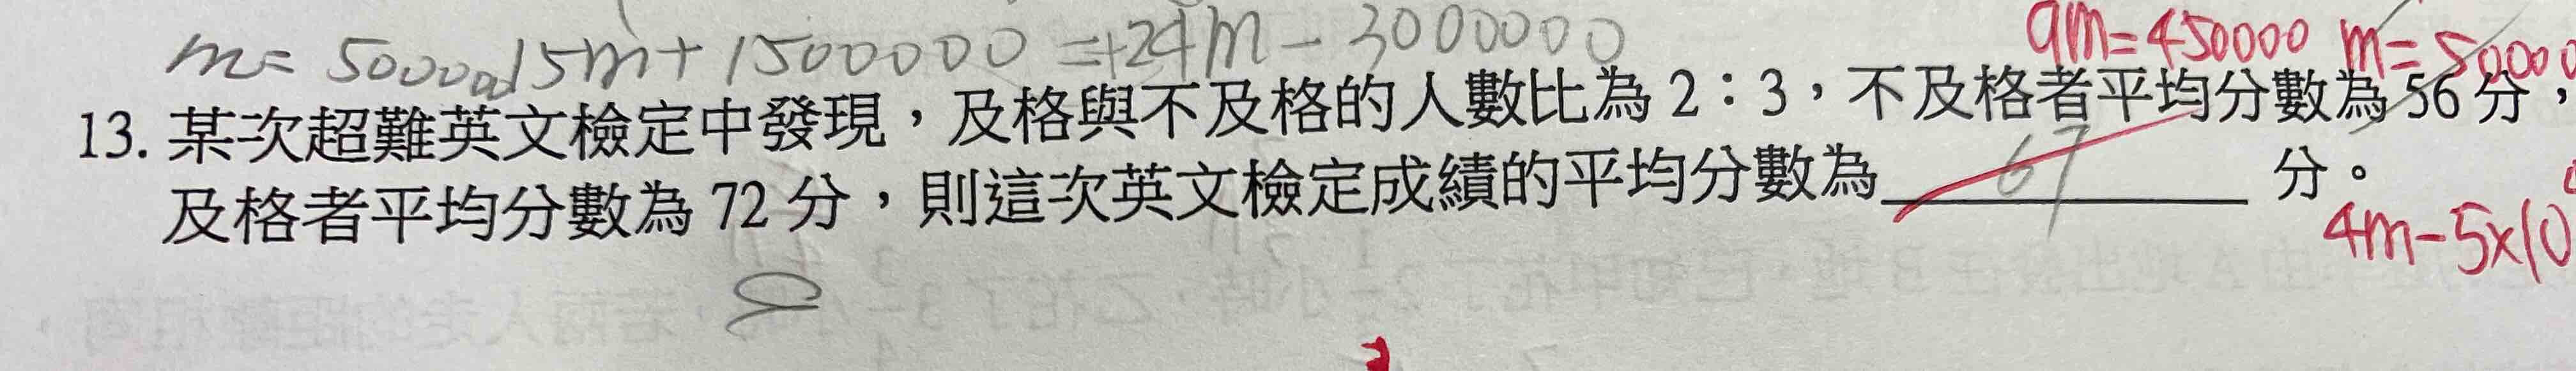 m= 50000 15m+1500000 =+24m-3000000
9m=450000 m=50000
13. 某次超難英文檢定中發現，及格與不及格的人數比為 2：3，不及格者平均分數為 56 分，
及格者平均分數為 72 分，則這次英文檢定成績的平均分數為 67 分。
4m-5×10